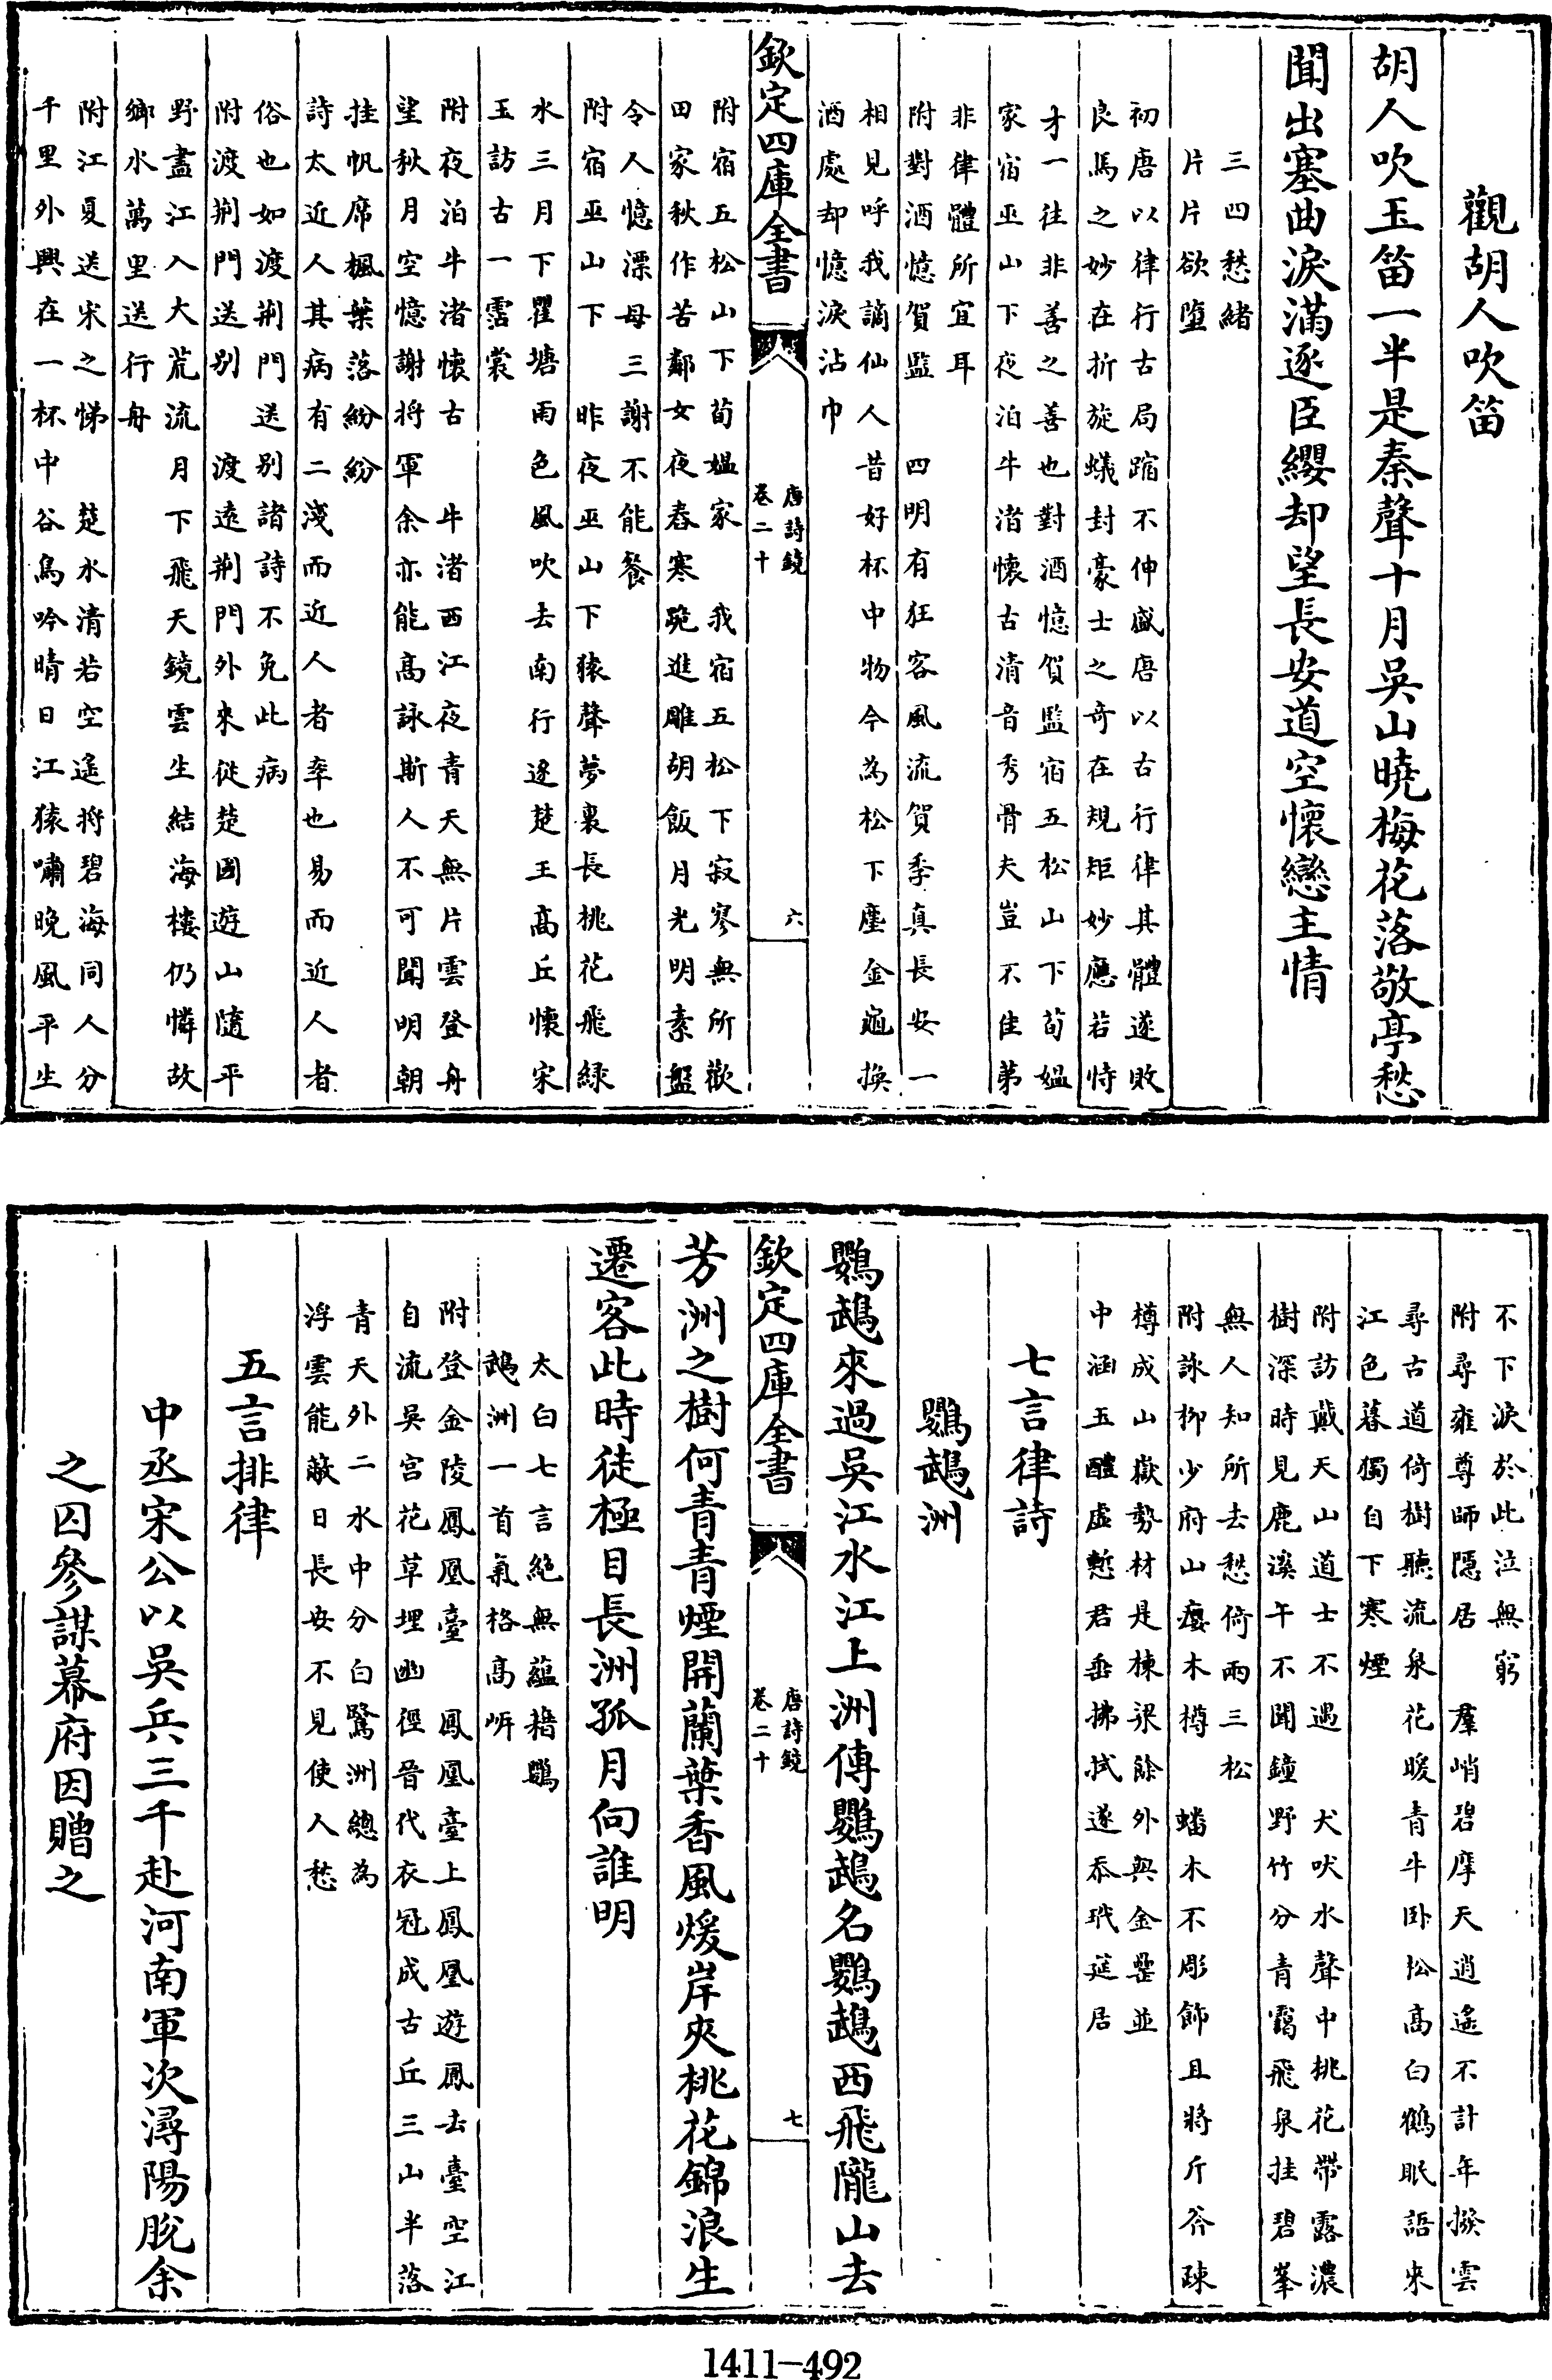 觀胡人吹笛
胡人吹玉笛一半是秦聲十月吳山曉梅花落敬亭愁
聞出塞曲淚滿逐臣纓却望長安道空懷戀主情
三四愁緒
片片欲墮
初唐以律行古局蹜不伸盛唐以古行律其體遂敗
良馬之妙在折旋蟻封豪士之奇在規矩妙應若恃
才一往非善之善也對酒憶賀監宿五松山下荀媼
家宿巫山下夜泊牛渚懷古清音秀骨夫豈不佳第
非律體所宜耳
附對酒憶賀監 四明有狂客風流賀季真長安一
相見呼我謫仙人昔好杯中物今為松下塵金龜換
酒處却憶淚沾巾
欽定四庫全書
唐詩鏡
卷二十
六
附宿五松山下荀媼家 我宿五松下寂寥無所歡
田家秋作苦鄰女夜舂寒跪進雕胡飯月光明素盤
令人憶漂母三謝不能餐
附宿巫山下 昨夜巫山下猿聲夢裏長桃花飛緑
水三月下瞿塘雨色風吹去南行逐楚王高丘懷宋
玉訪古一霑裳
附夜泊牛渚懷古 牛渚西江夜青天無片雲登舟
望秋月空憶謝将軍余亦能高詠斯人不可聞明朝
挂帆席楓葉落紛紛
詩太近人其病有二淺而近人者率也易而近人者
俗也如渡荆門送别諸詩不免此病
附渡荆門送别 渡遠荆門外來從楚國遊山隨平
野盡江入大荒流月下飛天鏡雲生結海樓仍憐故
鄉水萬里送行舟
附江夏送宋之悌 楚水清若空遥将碧海同人分
千里外興在一杯中谷鳥吟晴日江猿嘯晚風平生
不下淚於此泣無窮
附尋雍尊師隱居 羣峭碧摩天逍遥不計年撥雲
尋古道倚樹聽流泉花暖青牛卧松高白鶴眠語來
江色暮獨自下寒煙
附訪戴天山道士不遇 犬吠水聲中桃花帶露濃
樹深時見鹿溪午不聞鐘野竹分青靄飛泉挂碧峯
無人知所去愁倚兩三松
附詠柳少府山癭木樽 蟠木不彫飾且將斤斧疎
樽成山嶽勢材是棟梁餘外與金罍並
中涵玉醴虚慙君垂拂拭遂忝玳筵居
七言律詩
鸚鵡洲
鸚鵡來過吳江水江上洲傳鸚鵡名鸚鵡西飛隴山去
欽定四庫全書
唐詩鏡
卷二十
七
芳洲之樹何青青煙開蘭葉香風煖岸夾桃花錦浪生
遷客此時徒極目長洲孤月向誰明
太白七言絕無藴藉鸚
鵡洲一首氣格高岍
附登金陵鳳凰臺 鳳凰臺上鳳凰遊鳳去臺空江
自流吳宮花草埋幽徑晉代衣冠成古丘三山半落
青天外二水中分白鷺洲總為
浮雲能蔽日長安不見使人愁
五言排律
中丞宋公以吳兵三千赴河南軍次潯陽脫余
之囚參謀幕府因贈之
1411-492